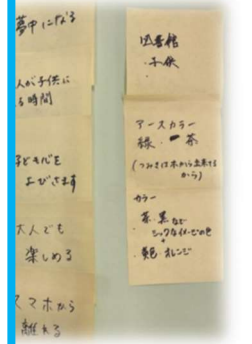 夢中になる
人が子供に
る時間
子ども心を
よびさます
大人でも
楽しめる
スマホから
離れる
図書館
・子供
・
アースカラー
緑・茶
(つみきは木から出来てる
から)
カラー
・茶、黒など
シックなイメージの色
+
・黄色 オレンジ